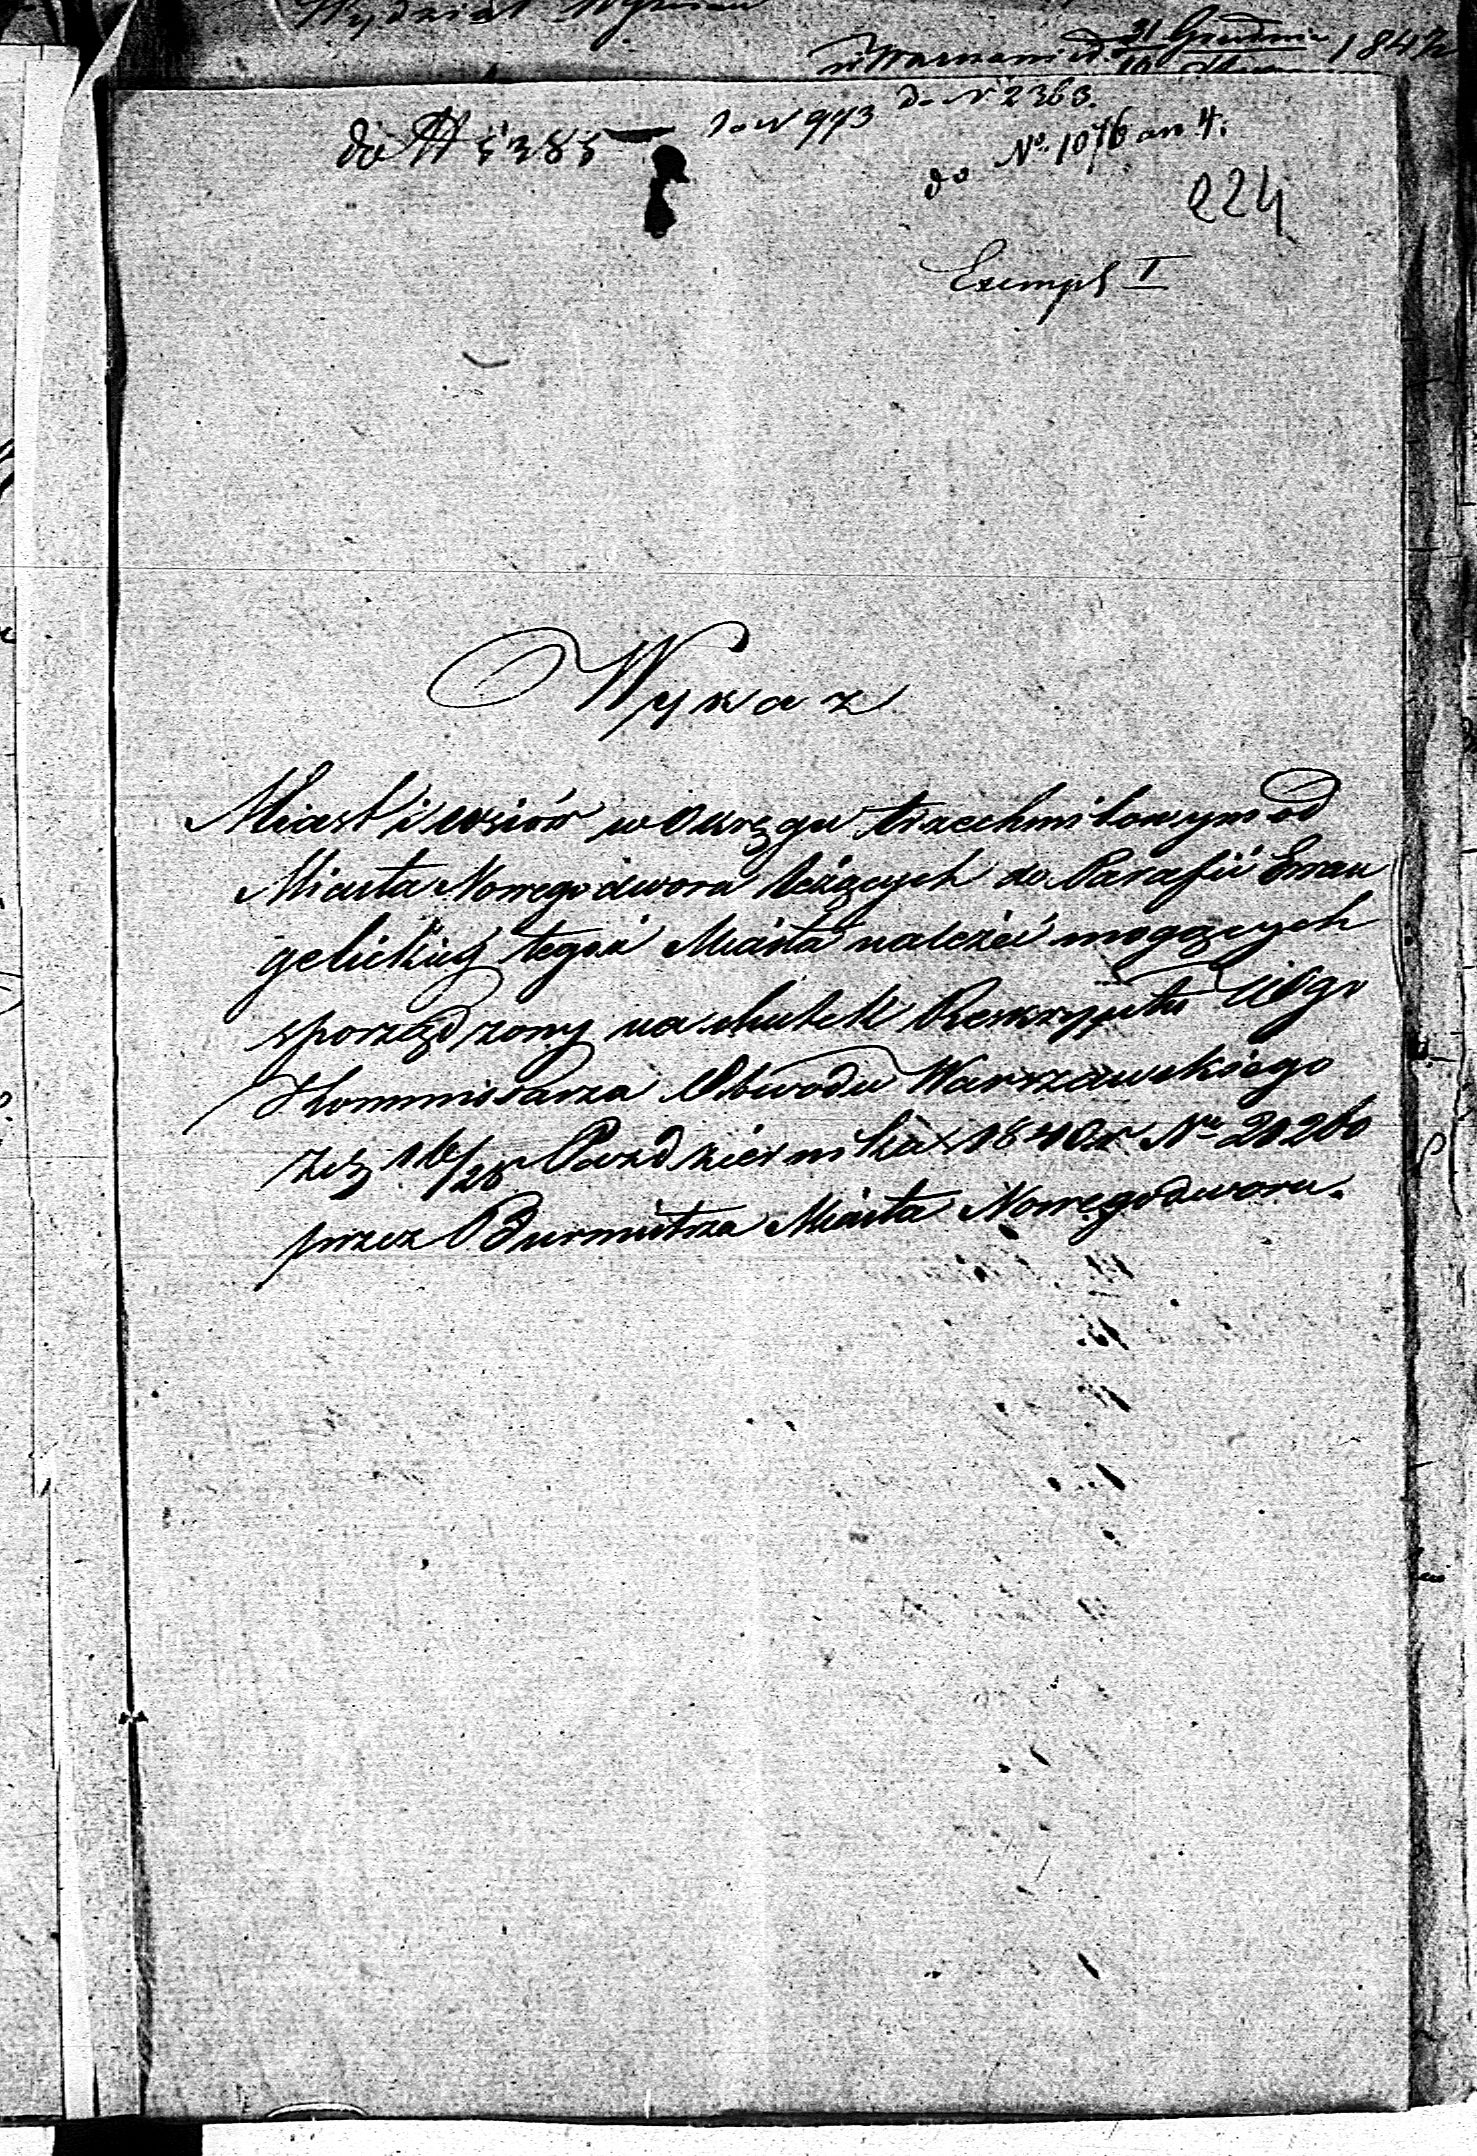 Wydział Wyznań
w Warszawie d. 31 Grudnia 184
do N 5385 do N 973 do N 2363.
do No. 1076 an 4.
224
Exempl I
Wykaz
Miast i wsiów w Okręgu trzechmilowym od
Miasta Nowegodworu leżących do Parafii Ewan
gelickiej tegoż Miasta należeć mogących
sporządzony na skutek Reskryptu
Kommissarza Obwodu Warszawskiego
z d. 16/28 Października 1840 r No 20260
przez Burmistrza Miasta Nowegodworu.